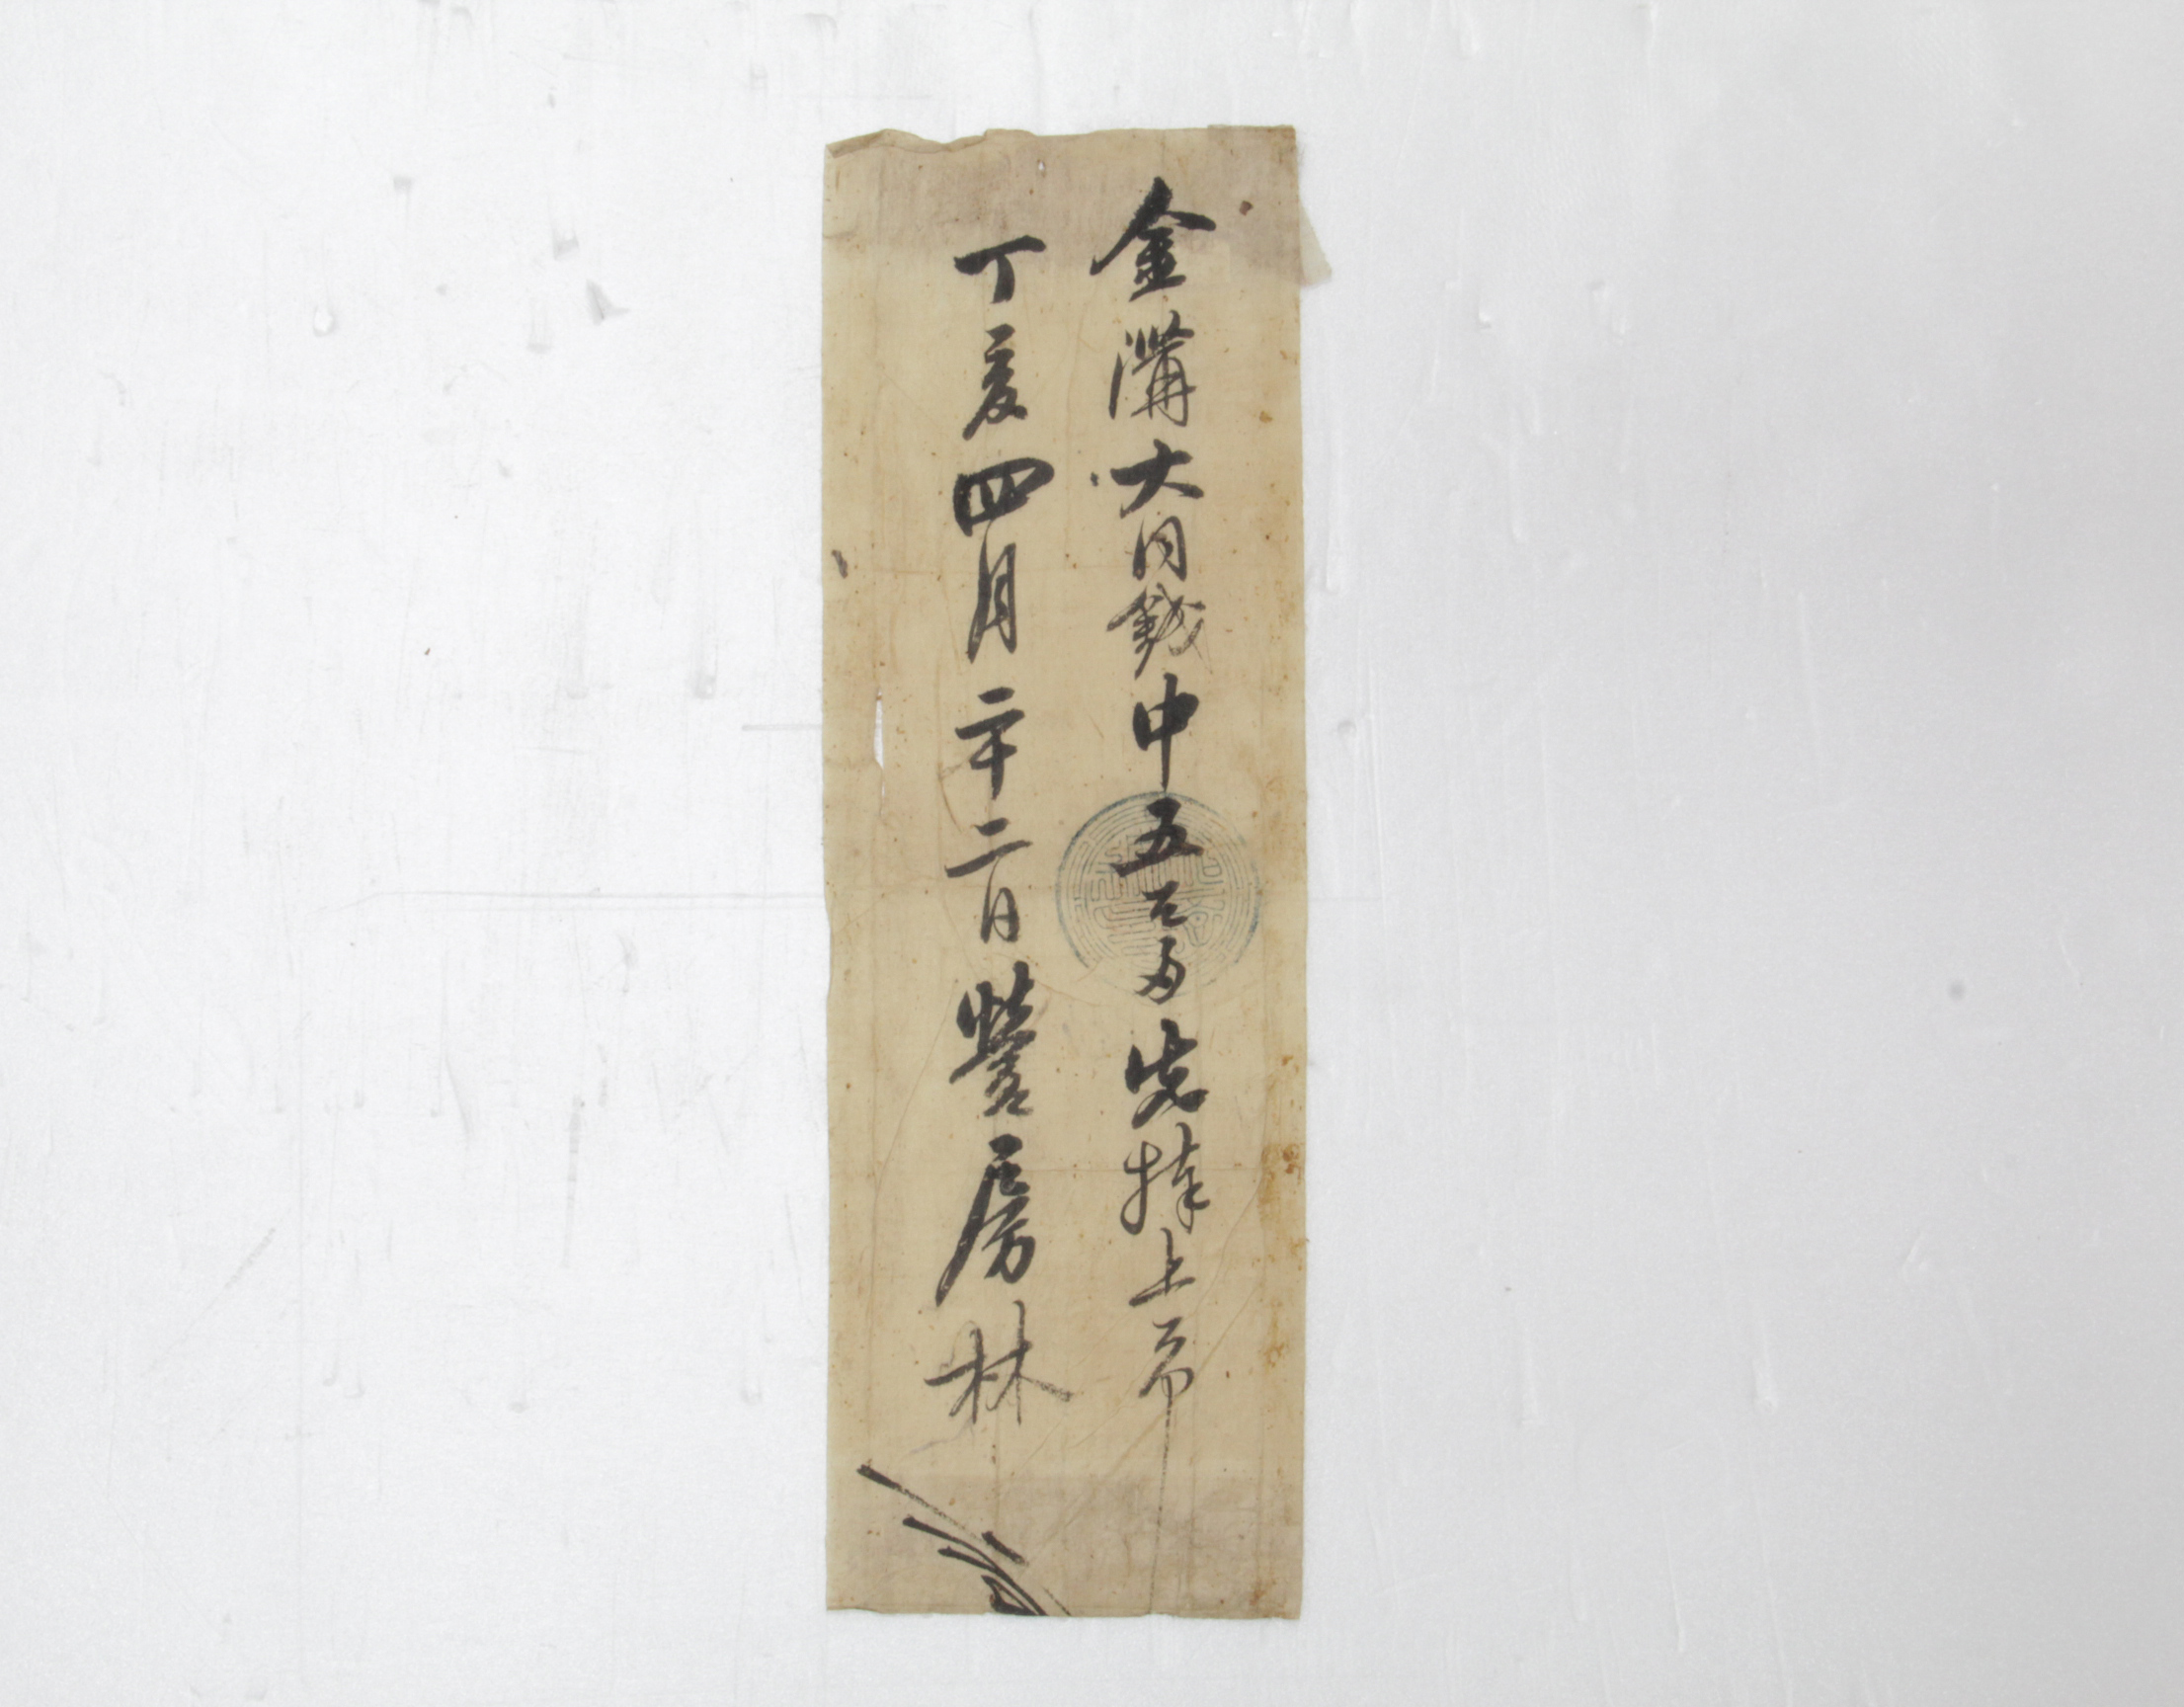 金溝大同錢中五百両先捧上印
丁亥四月二十二日營房林